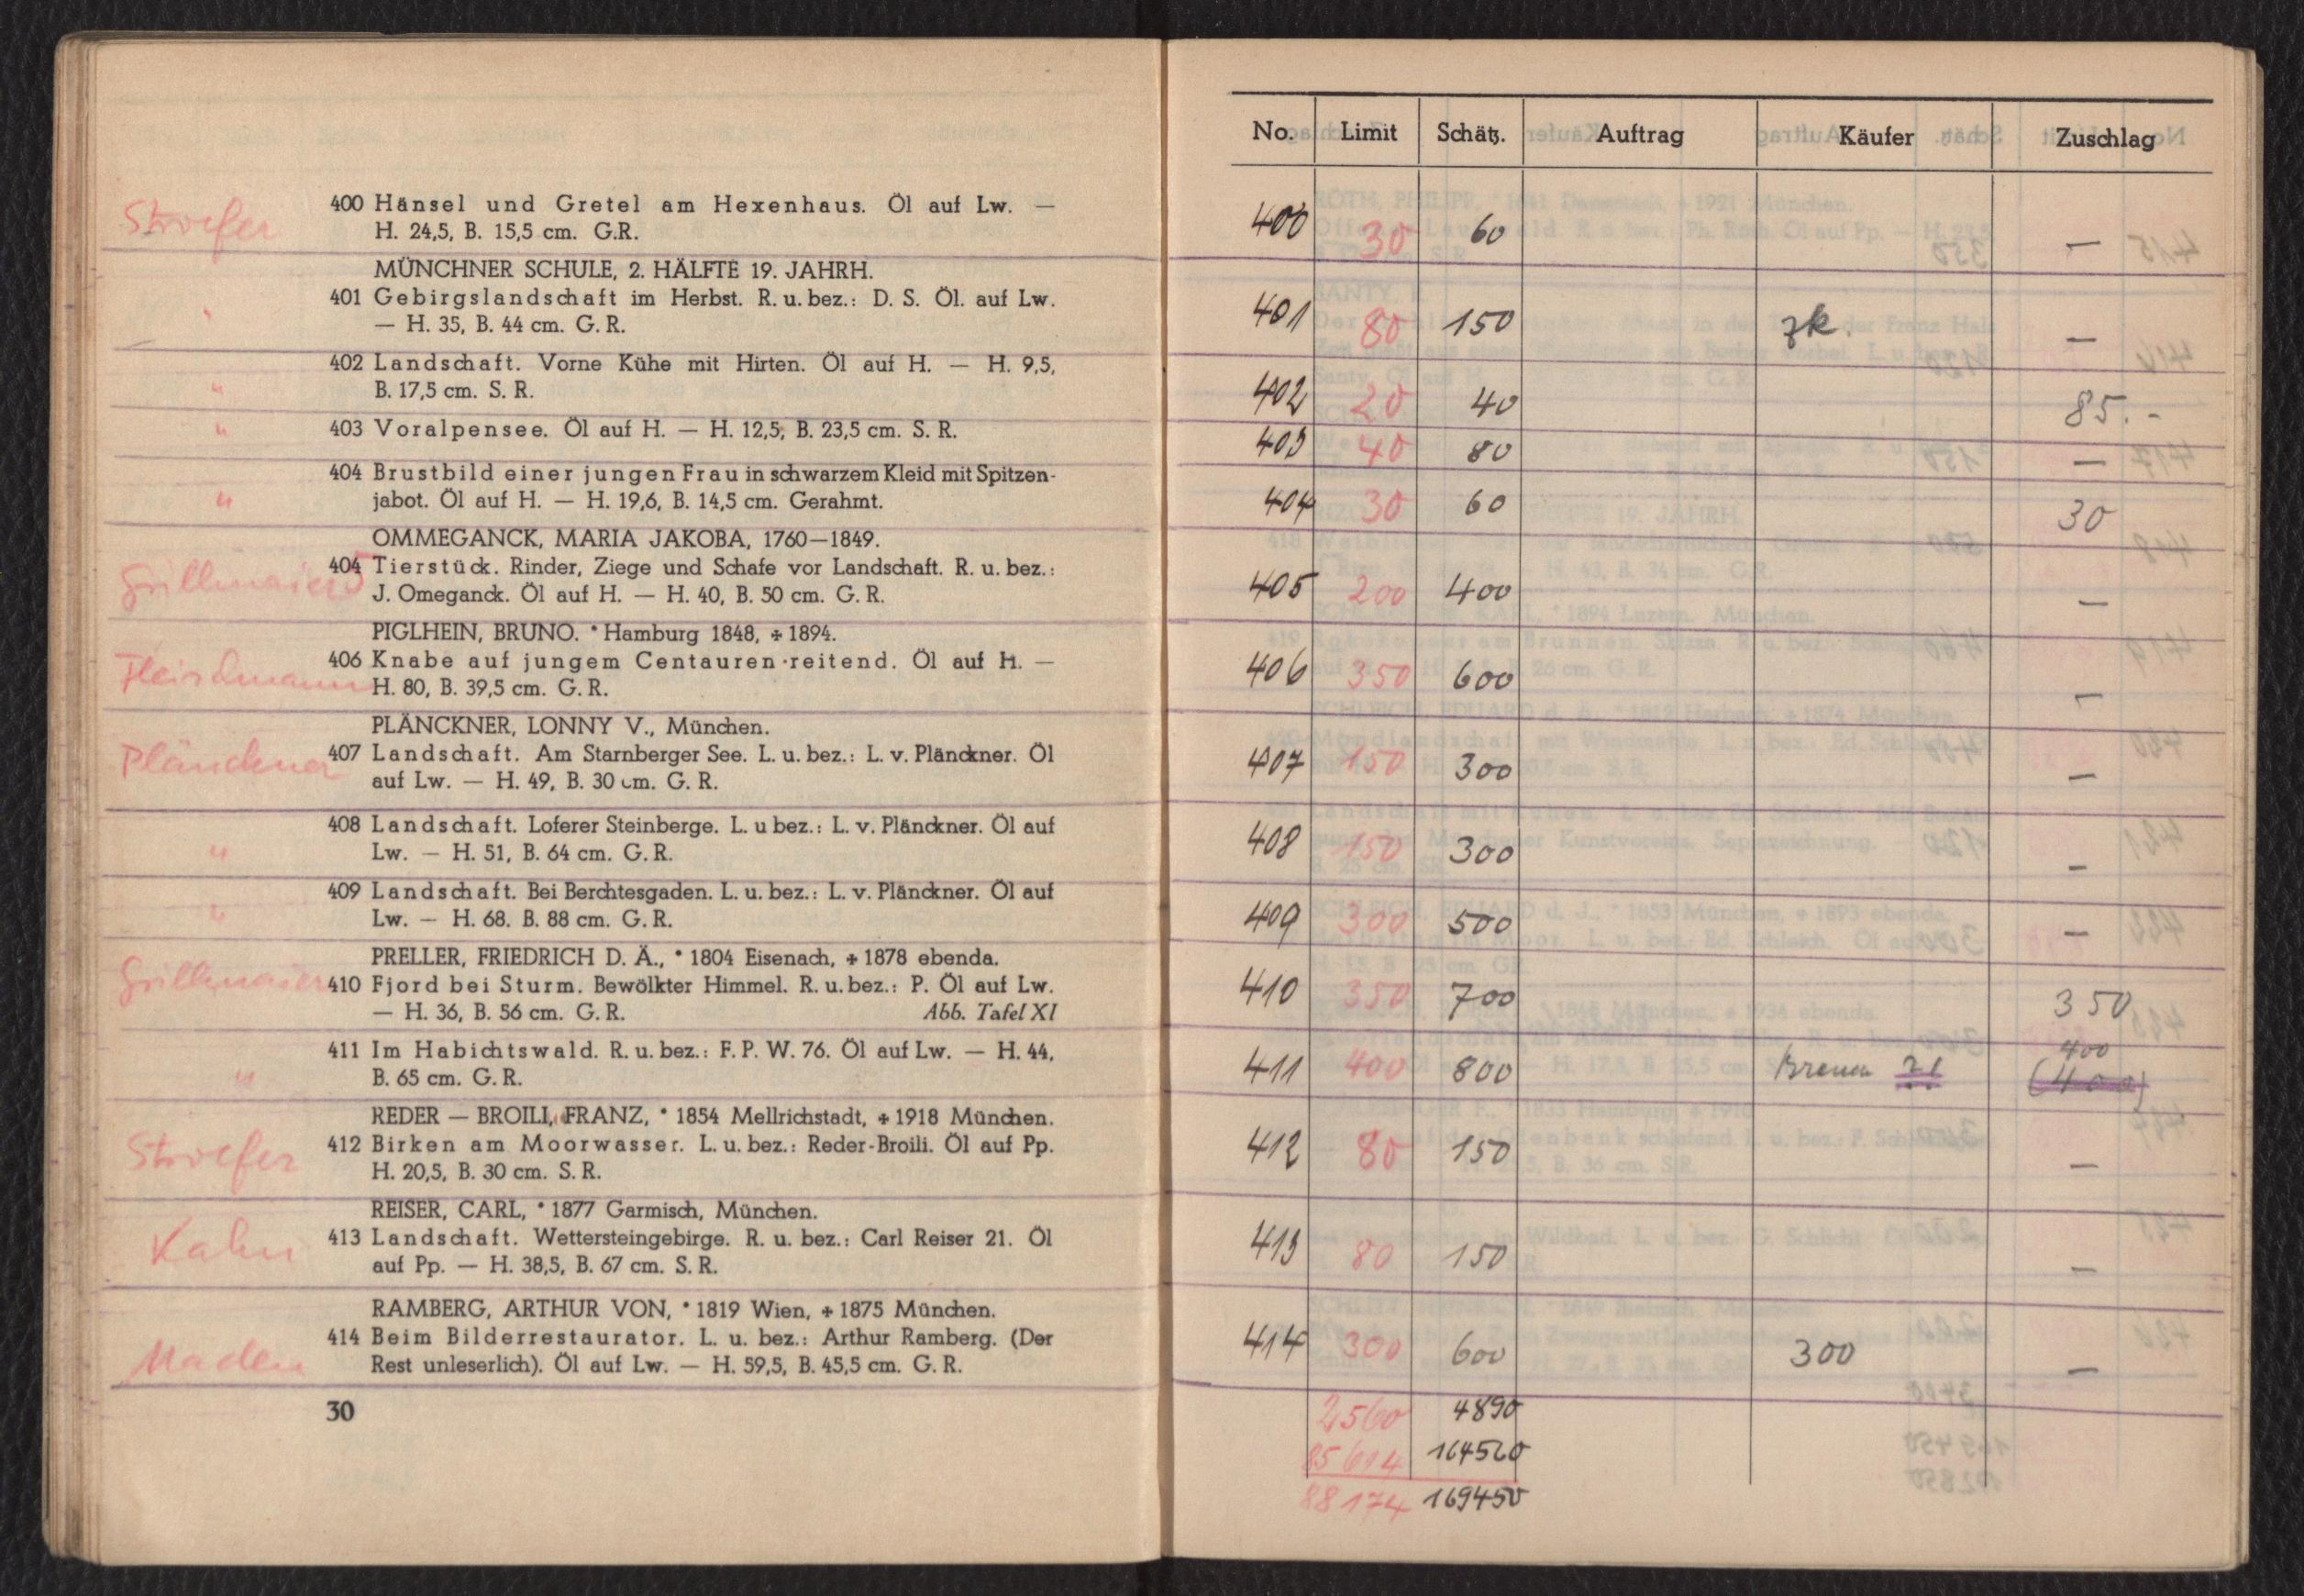 Stroefer
400 Hänsel und Gretel am Hexenhaus. Öl auf Lw. —
H. 24,5, B. 15,5 cm. G.R.
MÜNCHNER SCHULE, 2. HÄLFTE 19. JAHRH.
" 401 Gebirgslandschaft im Herbst. R. u. bez.: D. S. Öl. auf Lw.
— H. 35, B. 44 cm. G. R.
402 Landschaft. Vorne Kühe mit Hirten. Öl auf H. — H. 9,5,
" B. 17,5 cm. S. R.
" 403 Voralpensee. Öl auf H. — H. 12,5, B. 23,5 cm. S. R.
404 Brustbild einer jungen Frau in schwarzem Kleid mit Spitzen-
" jabot. Öl auf H. — H. 19,6, B. 14,5 cm. Gerahmt.
OMMEGANCK, MARIA JAKOBA, 1760—1849.
Grillmaier 404 5 Tierstück. Rinder, Ziege und Schafe vor Landschaft. R. u. bez.:
J. Omeganck. Öl auf H. — H. 40, B. 50 cm. G. R.
PIGLHEIN, BRUNO. * Hamburg 1848, + 1894.
Fleischmann 406 Knabe auf jungem Centauren reitend. Öl auf H. —
H. 80, B. 39,5 cm. G. R.
PLÄNCKNER, LONNY V., München.
Plänckner 407 Landschaft. Am Starnberger See. L. u. bez.: L. v. Plänckner. Öl
auf Lw. — H. 49, B. 30 cm. G. R.
408 Landschaft. Loferer Steinberge. L. u bez.: L. v. Plänckner. Öl auf
" Lw. — H. 51, B. 64 cm. G. R.
409 Landschaft. Bei Berchtesgaden. L. u. bez.: L. v. Plänckner. Öl auf
" Lw. — H. 68. B. 88 cm. G. R.
PRELLER, FRIEDRICH D. Ä., * 1804 Eisenach, + 1878 ebenda.
Grillmaier 410 Fjord bei Sturm. Bewölkter Himmel. R. u. bez.: P. Öl auf Lw.
— H. 36, B. 56 cm. G. R. Abb. Tafel XI
411 Im Habichtswald. R. u. bez.: F. P. W. 76. Öl auf Lw. — H. 44,
" B. 65 cm. G. R.
REDER — BROILI, FRANZ, * 1854 Mellrichstadt, + 1918 München.
Stroefer 412 Birken am Moorwasser. L. u. bez.: Reder-Broili. Öl auf Pp.
H. 20,5, B. 30 cm. S. R.
REISER, CARL, * 1877 Garmisch, München.
Kahn 413 Landschaft. Wettersteingebirge. R. u. bez.: Carl Reiser 21. Öl
auf Pp. — H. 38,5, B. 67 cm. S. R.
RAMBERG, ARTHUR VON, * 1819 Wien, + 1875 München.
Maden 414 Beim Bilderrestaurator. L. u. bez.: Arthur Ramberg. (Der
Rest unleserlich). Öl auf Lw. — H. 59,5, B. 45,5 cm. G. R.
30
No. Limit Schätz. Auftrag Käufer Zuschlag
400 30 60 —
401 80 150 zk. —
402 20 40 85.-
403 40 80 —
404 30 60 30
405 200 400 —
406 350 600 —
407 150 300 —
408 150 300 —
409 300 500 —
410 350 700 350
400
411 400 800 (400)
412 80 150 —
413 80 150 —
414 300 600 300 —
2560 4890
85614 164560
88174 169450